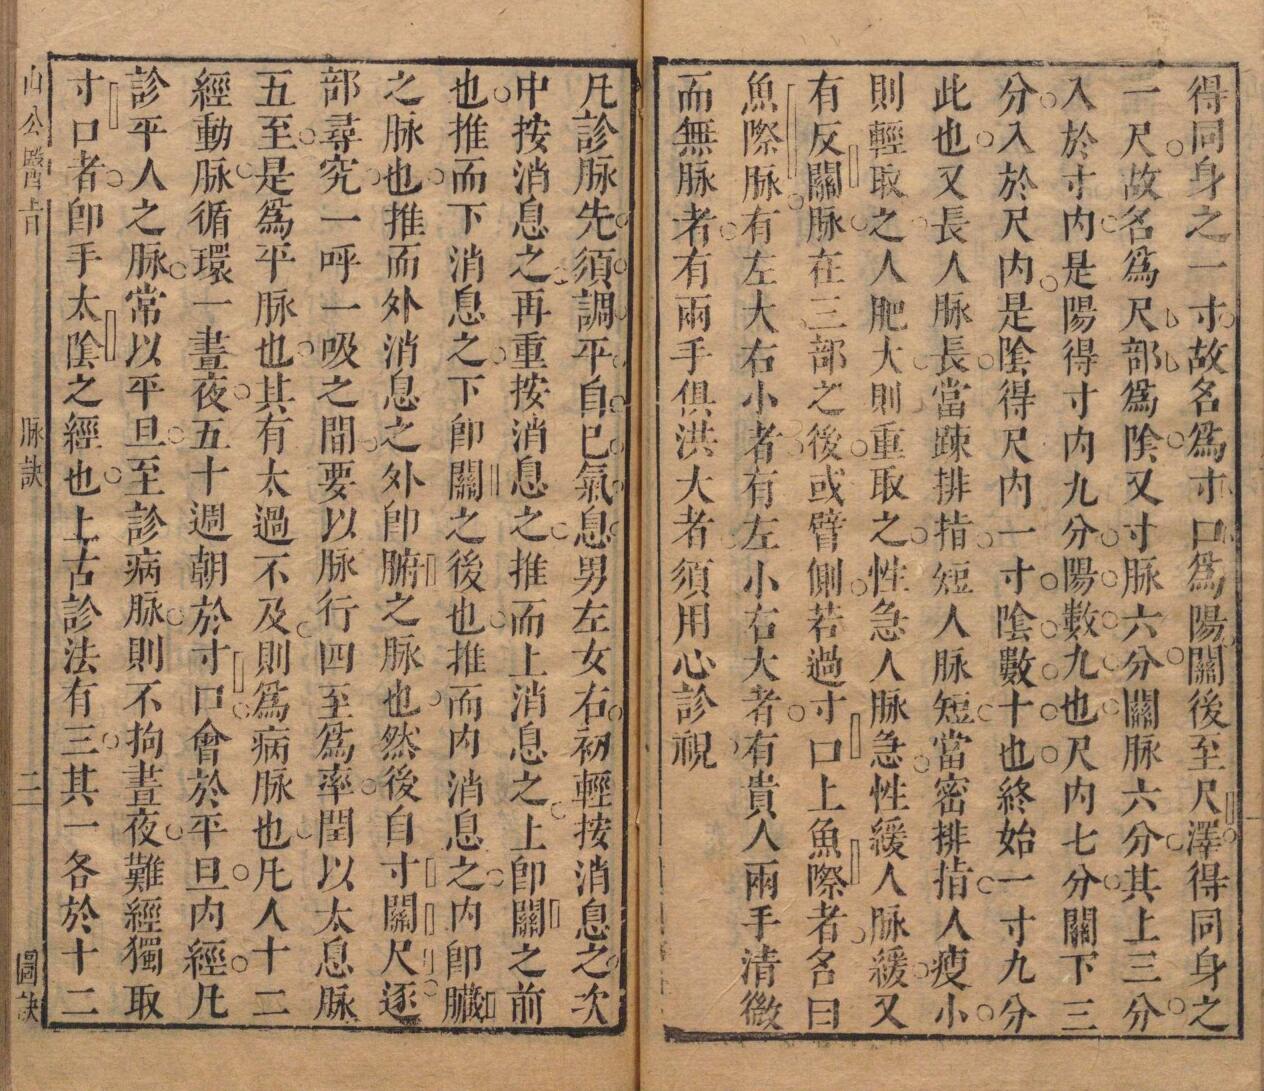 得同身之一寸故名爲寸口爲陽關後至尺澤得同身之
一尺故名爲尺部爲陰又寸脉六分關脉六分其上三分
入於寸内是陽得寸内九分陽數九也尺内七分關下三
分入於尺内是陰得尺内一寸陰數十也終始一寸九分
此也又長人脉長當踈排指短人脉短當密排指人瘦小
則輕取之人肥大則重取之性急人脉急性緩人脉緩又
有反關脉在三部之後或臂側若過寸口上魚際者名曰
魚際脉有左大右小者有左小右大者有貴人兩手清微
而無脉者有兩手俱洪大者須用心診視
凡診脉先須調平自已氣息男左女右初輕按消息之次
中按消息之再重按消息之推而上消息之上卽關之前
也推而下消息之下卽關之後也推而内消息之内卽臟
之脉也推而外消息之外卽腑之脉也然後自寸關尺逐
部尋究一呼一吸之間要以脉行四至爲率閏以太息脉
五至是爲平脉也其有太過不及則爲病脉也凡人十二
經動脉循環一晝夜五十週朝於寸口會於平旦内經凡
診平人之脉常以平旦至診病脉則不拘晝夜難經獨取
寸口者卽手太陰之經也上古診法有三其一各於十二
公醫
脉訣
二
圖訣